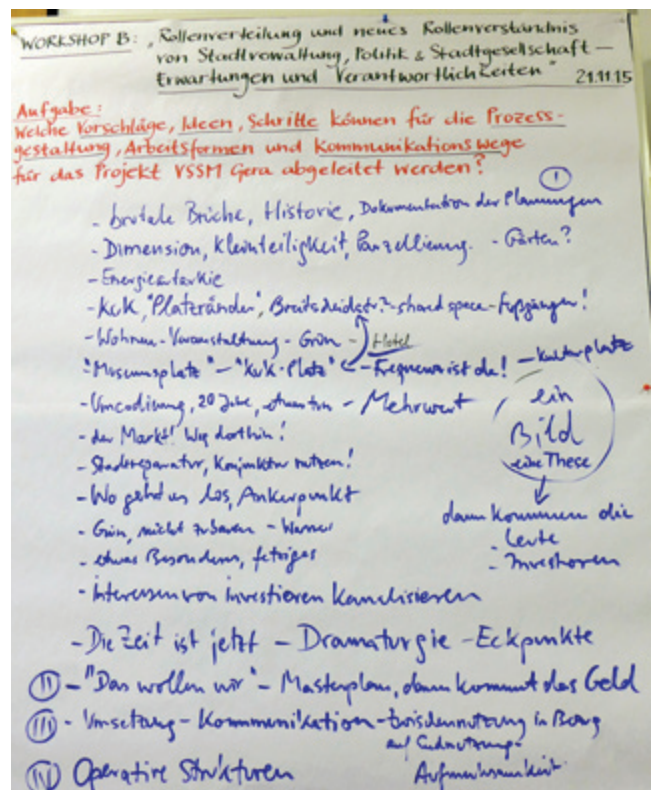 WORKSHOP B: "Rollenverteilung und neues Rollenverständnis
von Stadtverwaltung, Politik & Stadtgesellschaft –
Erwartungen und Verantwortlichkeiten" 21.11.15
Aufgabe:
Welche Vorschläge, Ideen, Schritte können für die Prozess-
gestaltung, Arbeitsformen und Kommunikationswege
für das Projekt VSSM Gera abgeleitet werden?
I
- brutale Brüche, Historie, Dokumentation der Planungen
- Dimension, Kleinteiligkeit, Parzellierung. - Gärten?
- Energieautarkie
- KuK, "Platzränder", Breitscheidstr.? - shared space - Fußgänger!
- Wohnen - Veranstaltung - Grün - Hotel
"Museumsplatz" - "KuK-Platz" - Frequenz ist da! - Kulturplatz
- Umcodierung, 20 Jahre, etwas tun - Mehrwert
ein
Bild
eine These
- der Markt! Weg dorthin!
- Stadtreparatur, Konjunktur nutzen!
- Wo geht es los, Ankerpunkt
dann kommen die
- Leute
- Investoren
- Grün, nicht zubauen -
- etwas Besonderes, fetziges
- Interessen von Investoren kanalisieren
- Die Zeit ist jetzt - Dramaturgie - Eckpunkte
II - "Das wollen wir" - Masterplan, dann kommt das Geld
III - Umsetzung - Kommunikation - Zwischennutzung in Bezug
auf Endnutzung -
Aufmerksamkeit
IV Operative Strukturen